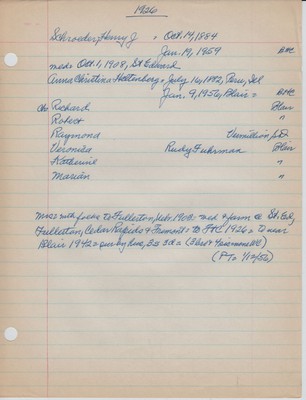 1926
Schroeder, Henry J. Oct. 14, 1884
Jan. 19, 1959 BHC
med= Oct. 1, 1908, St Edward
Anna Christina Holtenberg = July 16, 1892, Peru, Ill
Jan. 9, 1956, Blair = BHC
Ch: Richard Blair
Robert "
Raymond Vermillion, SD
Veronica Rudy Fuhrman Blair
Katherine "
Marian "
Moss with folks to Fullerton, Nebr. 1902 = med & farm @ St. Ed,
Fullerton, Cedar Rapids & Fremont = to FtC 1926 = to near
Blair 1942 = sur by hus, 3s 3d =
(PT = 1/12/56)